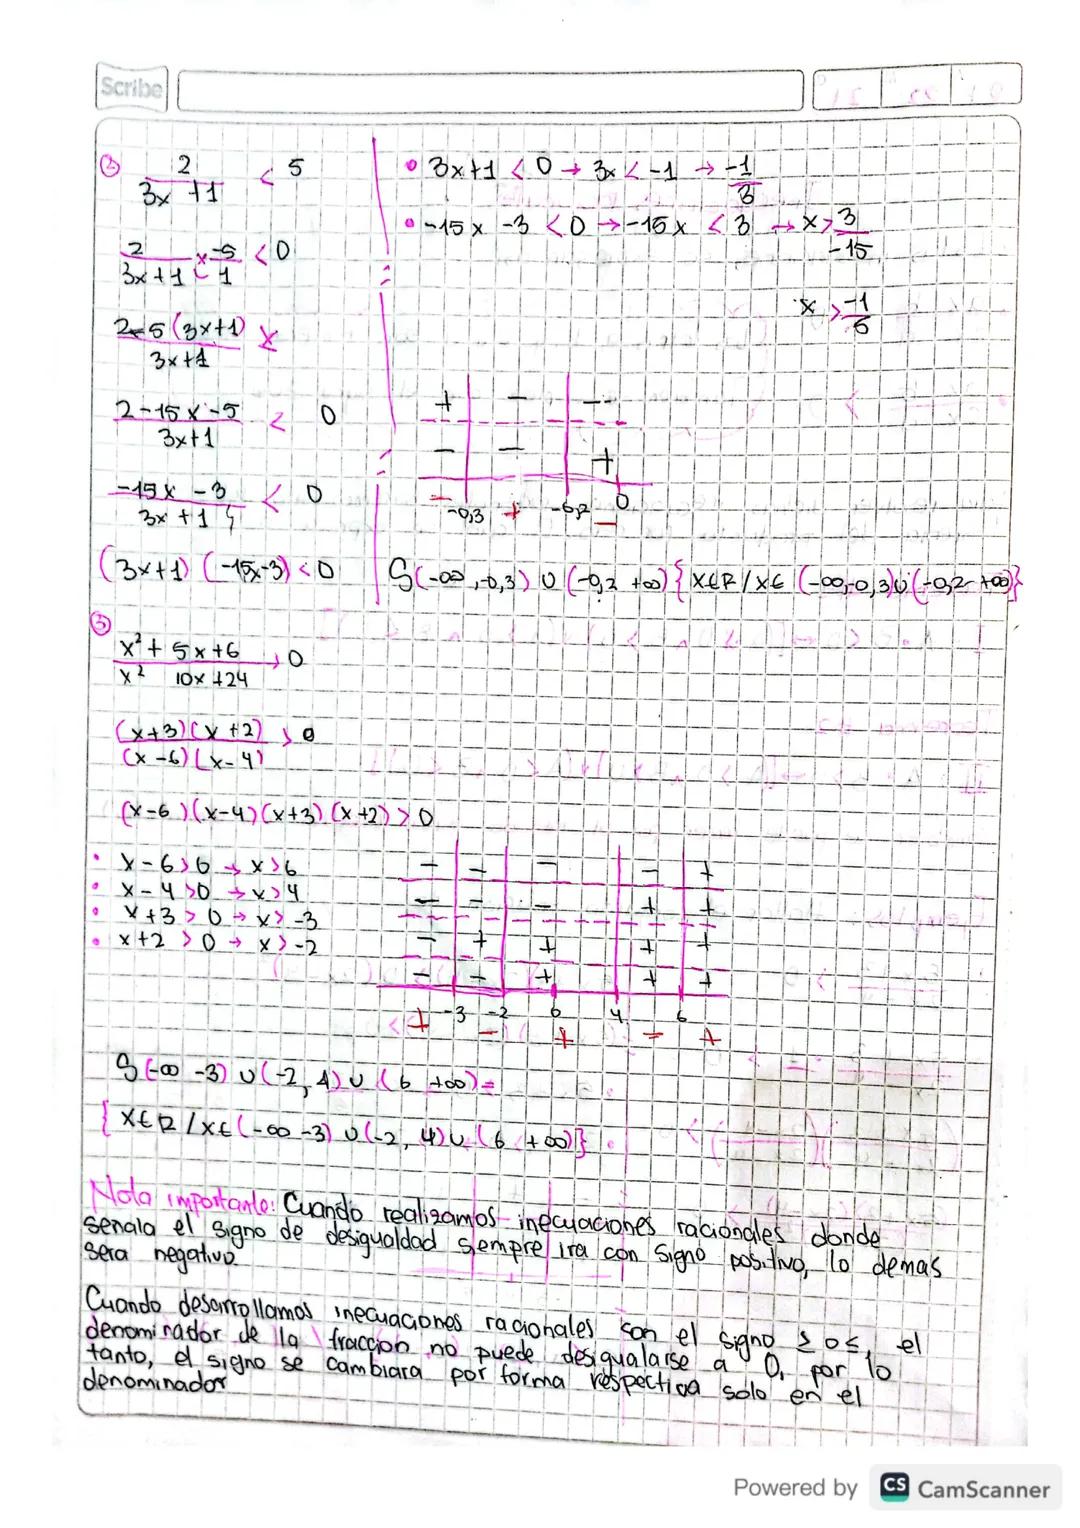 Scribe
② 2/(3x +1) < 5
2/(3x+1) × -5/1 < 0
2-5(3x+1)/(3x+1) <
2-15x-5/(3x+1) < 0
-15x -3/(3x+1) < 0
(3x+1) (-15x-3) < 0
• 3x+1 < 0 → 3x < -1 → -1/3
• -15x -3 < 0 → -15x < 3 → x > 3/-15
x > -1/5
+ - -
- - +
- -0,3 + -0,2 - 0
S(-∞, -0,3) ∪ (-0,2 +∞) {x∈R/x∈ (-∞,-0,3)∪(-0,2 +∞)}
③
x² + 5x+6/(x² 10x+24) > 0
(x+3)(x +2)/(x -6)(x-4) > 0
(x-6)(x-4)(x+3)(x+2) > 0
• x-6>0 → x>6
• x-4>0 → x>4
• x+3 > 0 → x> -3
• x+2 > 0 → x>-2
- - - - +
- - - + +
- + + + +
- - + + +
-3 -2 0 4 6
+ - + - +
S(-∞ -3) ∪ (-2, 4) ∪ (6 +∞) =
{x∈R/x∈(-∞ -3) ∪(-2, 4)∪ (6 +∞)}
Nota importante: Cuando realizamos inecuaciones racionales donde
senala el signo de desigualdad siempre ira con signo positivo, lo demas
sera negativo.
Cuando desarrollamos inecuaciones racionales con el signo ≥ o ≤, el
denominador de la fraccion no puede desigualarse a 0, por lo
tanto, el signo se cambiara por forma respectiva solo en el
denominador
Powered by CS CamScanner